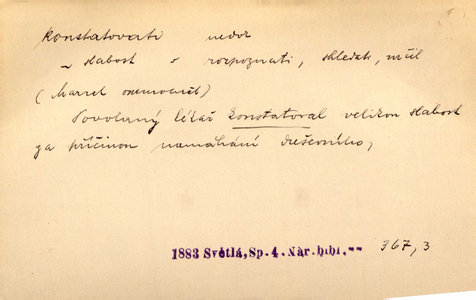 konstatovati nedok
~ slabost v rozpoznati, shledati, určit
(Marret onemocněl)
Povolaný lékař konstatoval velikou slabost
za příčinou namáhání duševního,
1883 Světlá, Sp. 4. Nár. bibl. -- 367, 3